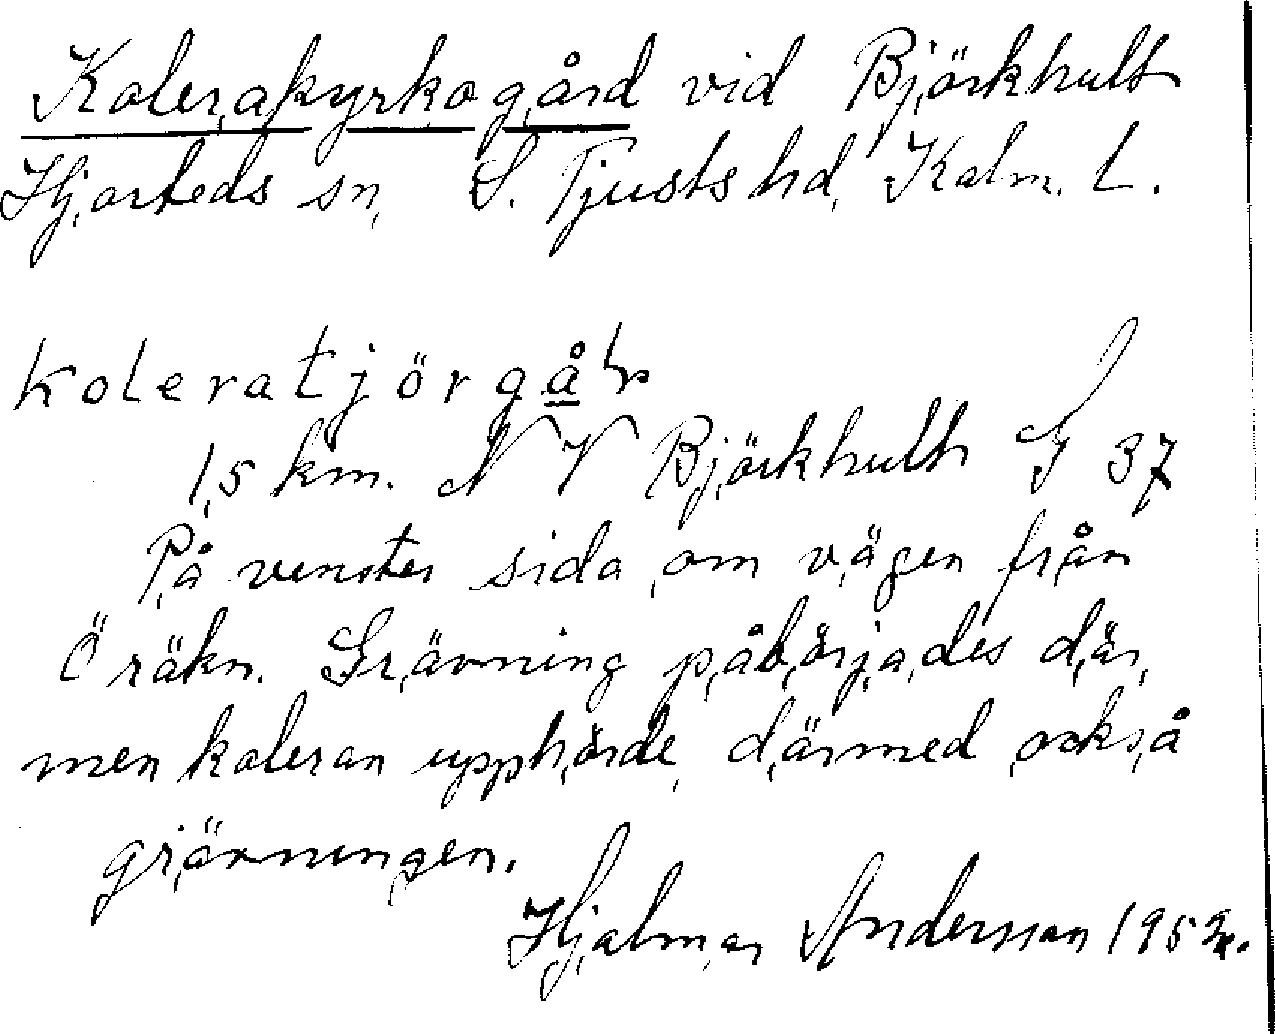 Kolerakyrkogård vid Björkhult
Hjorteds sn, S. Tjusts hd, Kalm. L.
koleratjörgår
1,5 km. NV Björkhult G 37
På venster sida om vägen från
Öräkn. Grävning påbörjades där,
men koleran upphörde, därmed också
grävningen.
Hjalmar Andersson 1952.